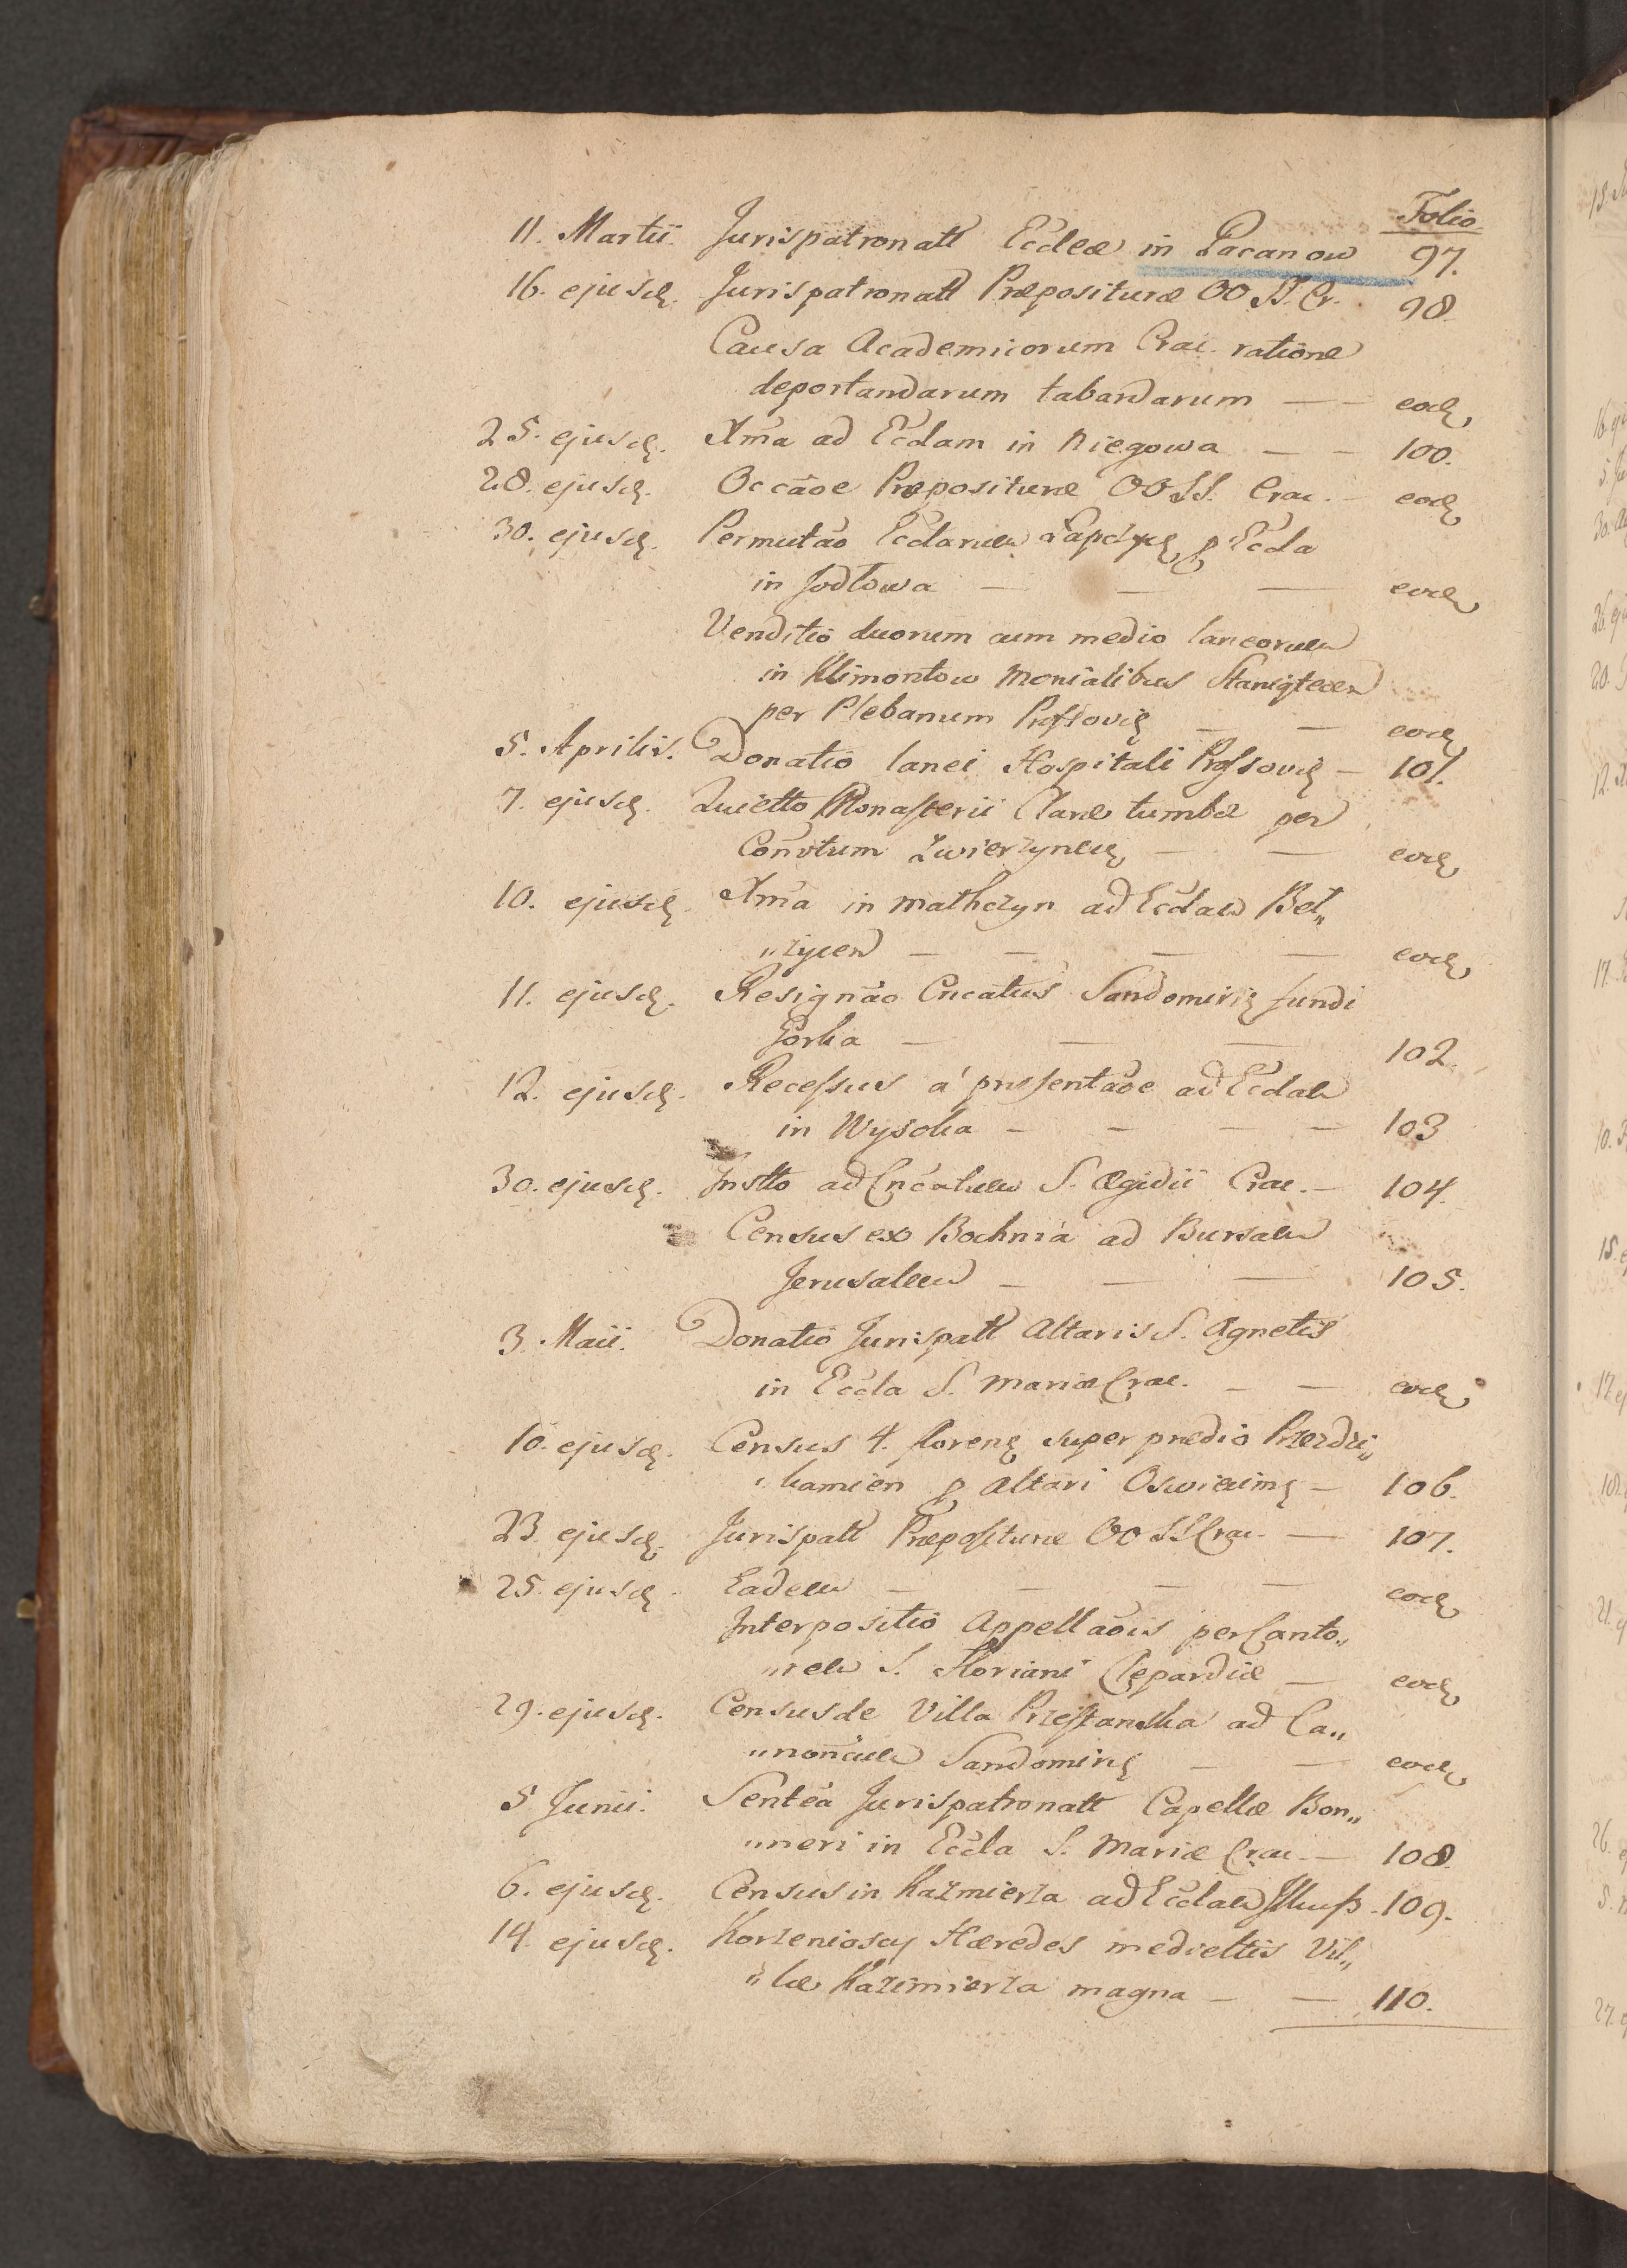 Folio
11. Martii. Jurispatronatt Eccleæ in Pacanow 97.
16. ejusd. Jurispatronatt Præposituræ OO SS. Cr. 98.
Causa Academicorum Crac. ratione
deportandarum tabardarum — — eod
25. ejusd. Xma ad Ecclam in Niegowa — — 100.
28. ejusd. Occaõe Præposituræ OOSS. Crac. — eod
30. ejusd. Permutaõ Ecclarum Lapczyc p Eccla
in Jodłowa — — — eod
Venditio duorum cum medio laneorum
in Klimontow Monialibus Staniątecen
per Plebanum Prossovi — — eod
5. Aprilis. Donatio lanei Hospitali Prossovi — 101.
7. ejusd. Quietto Monasterii Claræ tumbæ per
Convtum Zwierzynec — — eod
10. ejusd. Xma in Mathczyn ad Ecclam Bel„
„zycen — — — — eod
11. ejusd. Resignaõ Cncatus Sandomiri fundi
Gorka — — — 102.
12. ejusd. Recessus á præsentaõe ad Ecclam
in Wysoka — — — — 103
30. ejusd. Instto ad Cncatum S. Ægidii Crac. — 104.
Census ex Bochniá ad Bursam
Jerusalem — — — 105.
3. Maii. Donatio Jurispatt Altaris S. Agnetis
in Eccla S. Mariæ Crac. — — eod
10. ejusd. Census 4. floren super prædio Przezdzi„
„kamien p Altari Oswiecim — 106.
23. ejusd. Jurispatt Præposituræ OO SS Crac. — 107.
25. ejusd. Eadem — — — — eod
Interpositio Appellaõis per Canto„
„rem S. Floriani Clepardiæ — eod
29. ejusd. Census de Villa Przestanska ad Ca„
„noñcum Sandomiri — — eod
5 Junii. Sentea Jurispatronatt Capellæ Bon„
„neri in Eccla S. Mariæ Crac. — 108.
6. ejusd. Census in Kazmierza ad Ecclam 109.
14. ejusd. Korzenioscy Hæredes mediettis Vil„
„læ Kazimierza magna — — 110.